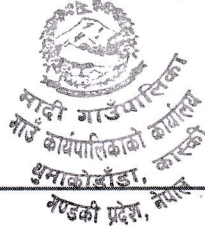 मादी गाउँपालिका
गाउँ कार्यपालिकाको कार्यालय
थुमाकोडाँडा, कास्की
गण्डकी प्रदेश, नेपाल